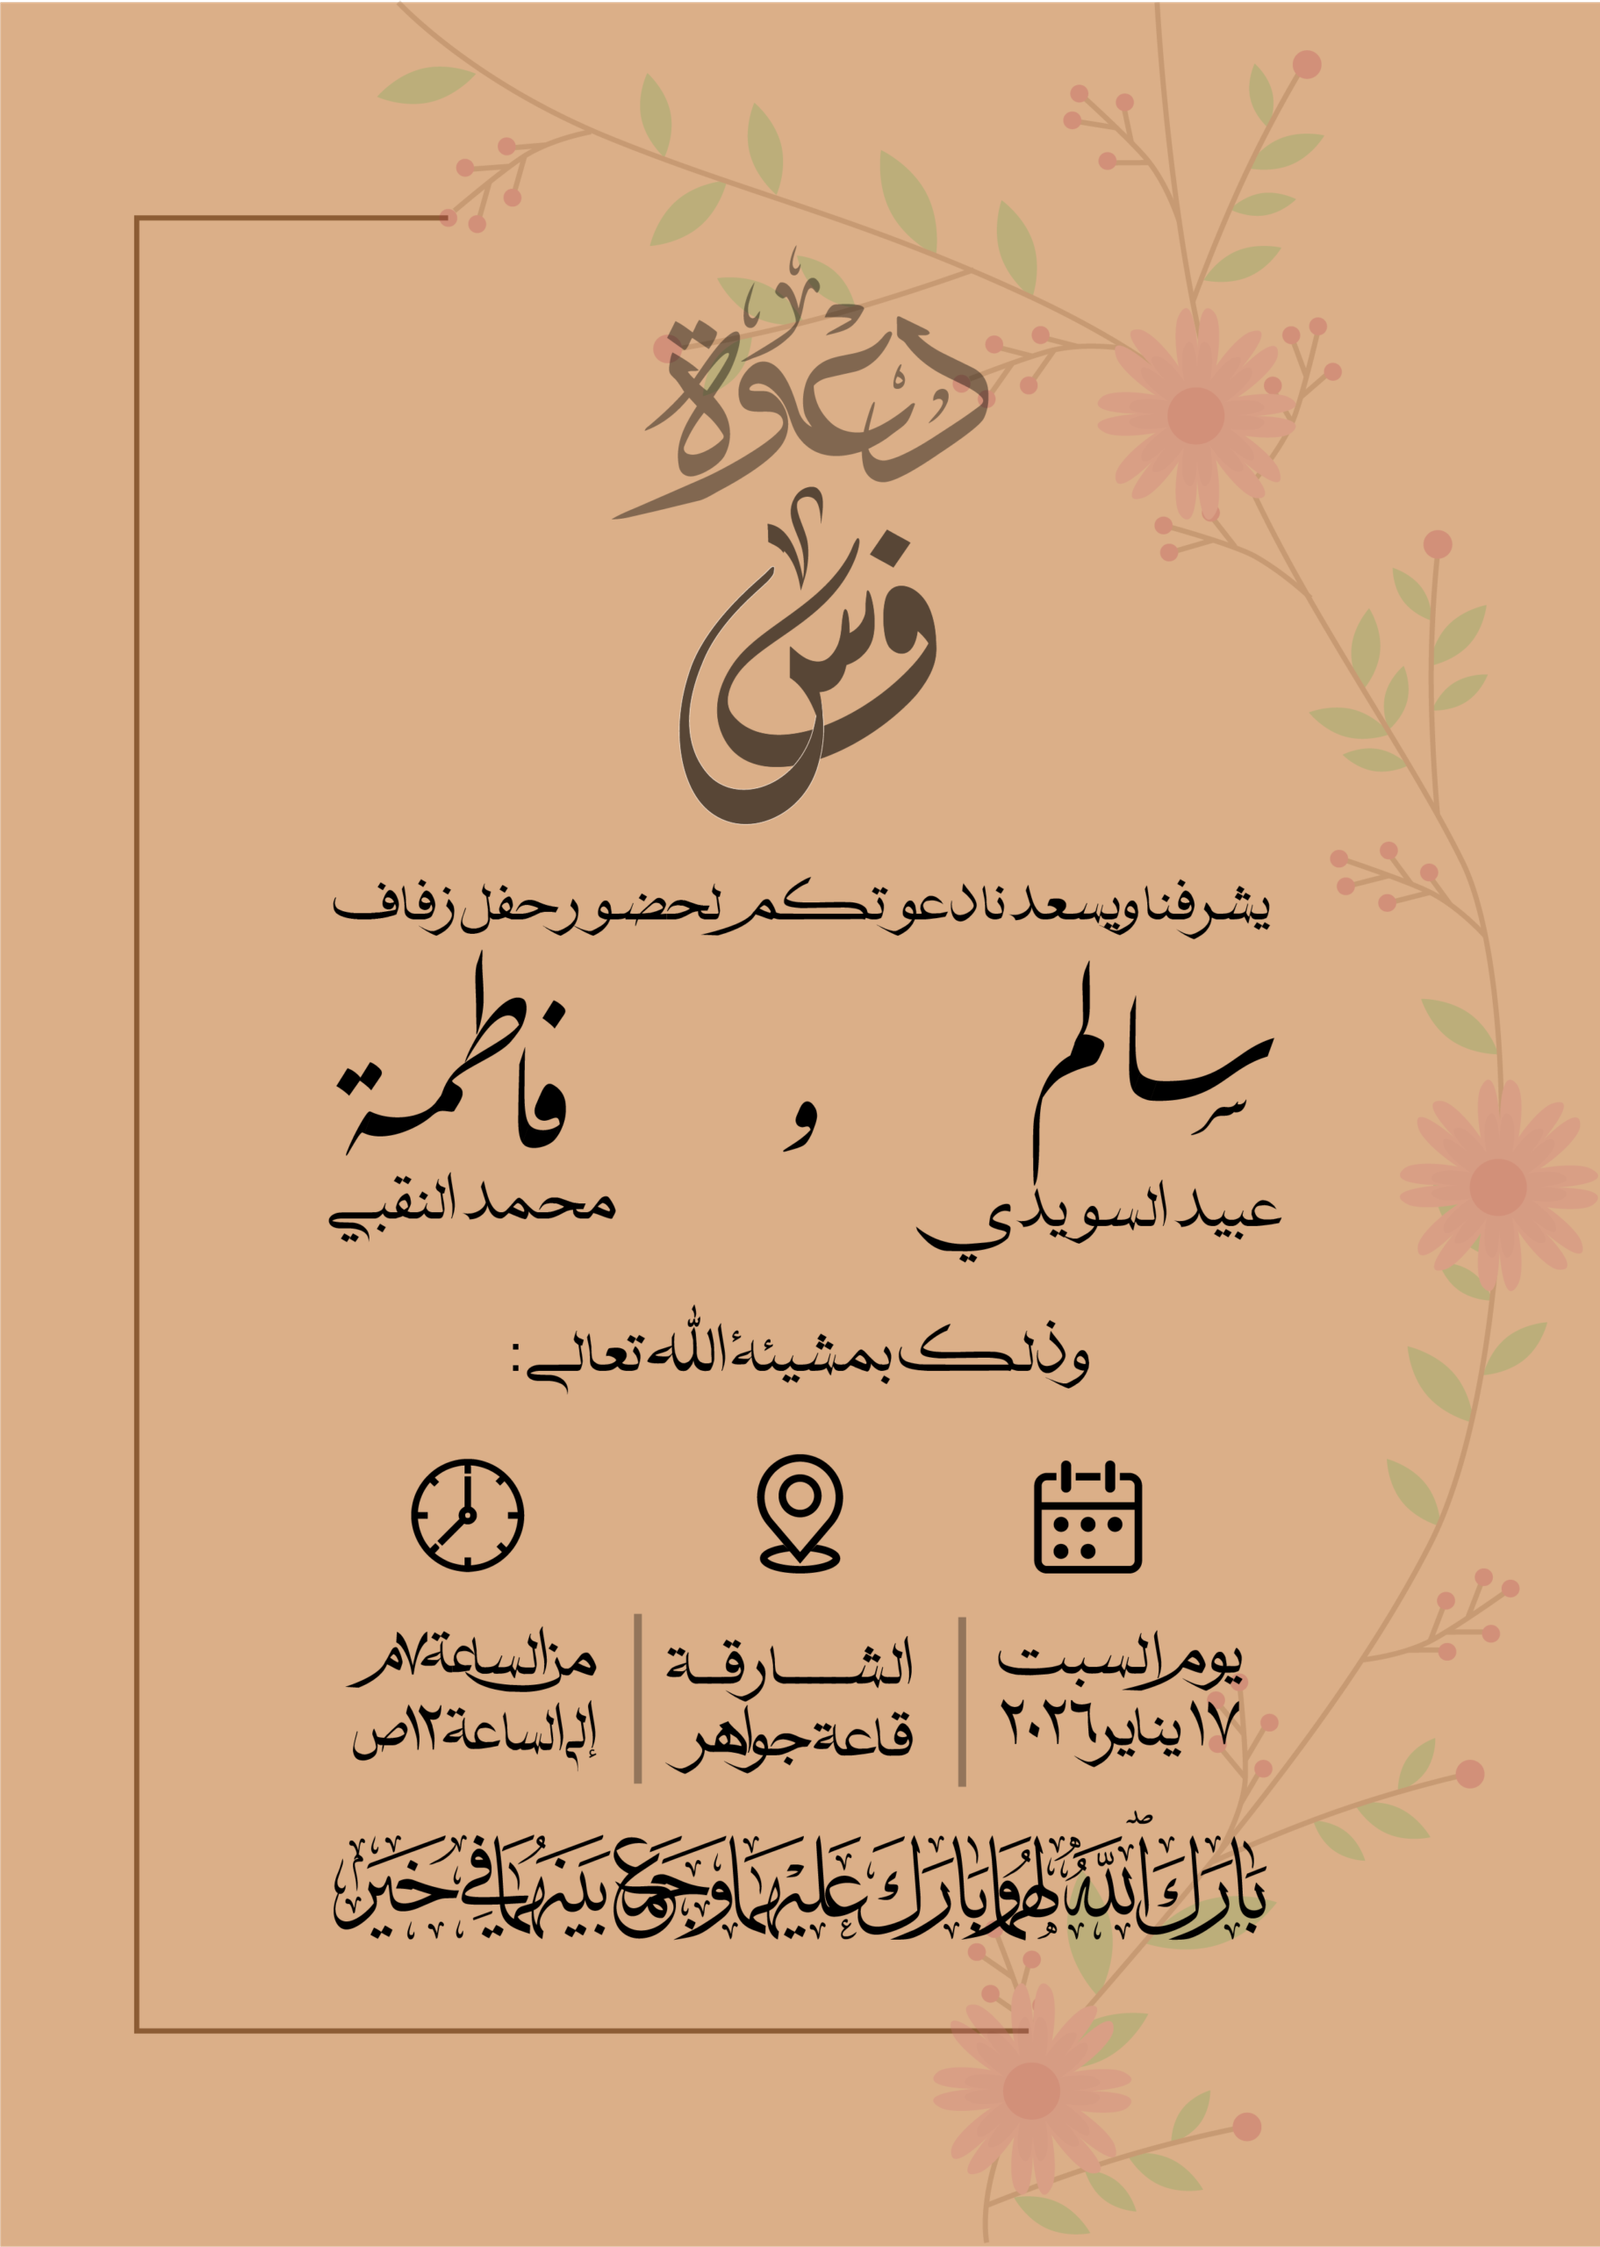 دعوة
فرش
يشرفنا ويسعدنا دعوتكم لحضور حفل زفاف
سالم و فاطمة
عبيد السويدي محمد النقبي
وذلك بمشيئة الله تعالى:
يوم السبت
١٧ يناير ٢٠٢٦
الشارقة
قاعة جواهر
من الساعة ٧م
إلى الساعة ١٢ص
بَارَكَ اللَّهُ لهُمَا وَبَارَكَ عَلَيْهِمَا وَجَمَعَ بَيْنَهُمَا فِي خَيْرٍ